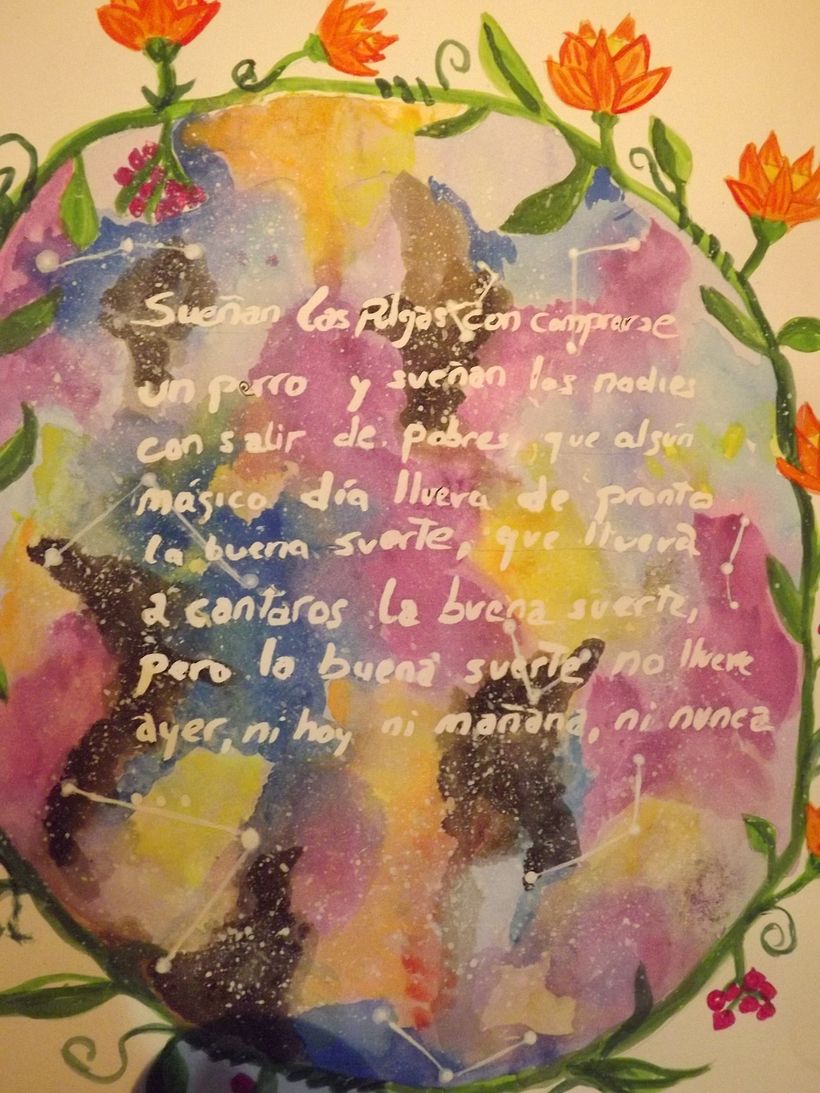 Sueñan las Pulgas con comprarse
un perro y sueñan los nadies
con salir de pobres, que algún
mágico día llueva de pronto
la buena suerte, que llueva
a cantaros la buena suerte,
pero la buena suerte no llueve
ayer, ni hoy ni mañana, ni nunca